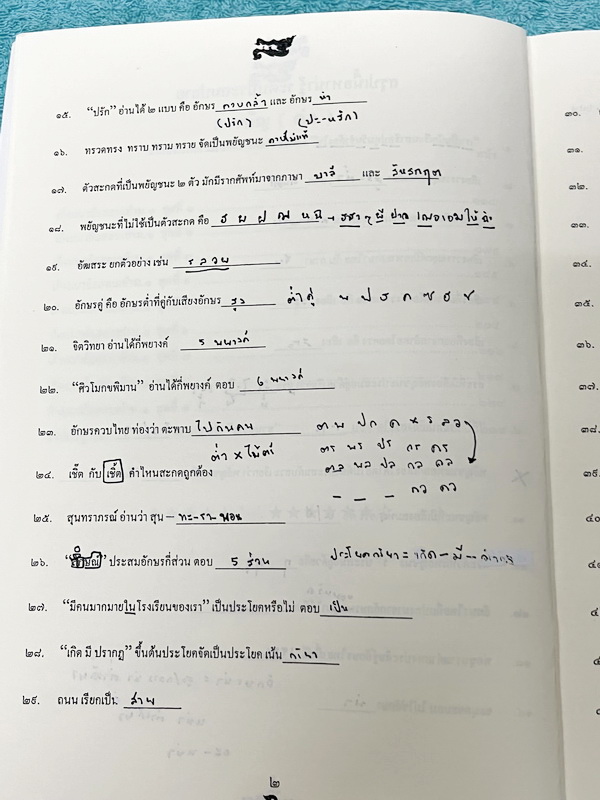 ๑๕. “ปรัก” อ่านได้ ๒ แบบ คือ อักษร ควบกล้ำ และ อักษร นำ
(ปรัก) (ปะ-หรัก)
๑๖. ทรวดทรง ทราบ ทราม ทราย จัดเป็นพยัญชนะ ควบไม่แท้
๑๗. ตัวสะกดที่เป็นพยัญชนะ ๒ ตัว มักมีรากศัพท์มาจากภาษา บาลี และ สันสกฤต
๑๘. พยัญชนะที่ไม่ใช้เป็นตัวสะกด คือ
๑๙. อัฒสระ ยกตัวอย่าง เช่น
๒๐. อักษรคู่ คือ อักษรต่ำที่คู่กับเสียงอักษร สูง ต่ำคู่
๒๑. จิตวิทยา อ่านได้กี่พยางค์ 5 พยางค์
๒๒. “ศิวโมกขพิมาน” อ่านได้กี่พยางค์ ตอบ 6 พยางค์
๒๓. อักษรควบไทย ท่องว่า ตะพาบ ไปกินคน ต พ ป ก ค × ร ล ว
ตร พร ปร กร คร
ต่ำ × ไม้ตรี ตล พล ปล กล คล
๒๔. เชิ๊ต กับ เชิ้ต คำไหนสะกดถูกต้อง
– – – กว คว
๒๕. สุนทราภรณ์ อ่านว่า สุน – ทะ-รา-พอน
๒๖. ประสมอักษรกี่ส่วน ตอบ 5 ส่วน ประโยคกริยา = เกิด – มี – ปรากฏ
๒๗. “มีคนมากมายในโรงเรียนของเรา” เป็นประโยคหรือไม่ ตอบ เป็น
๒๘. “เกิด มี ปรากฏ” ขึ้นต้นประโยคจัดเป็นประโยค เน้น กริยา
๒๙. ถนน เรียกเป็น สาย
๒
๓๐.
๓๑.
๓๒.
๓๓.
๓๔.
๓๕.
๓๖.
๓๗.
๓๘.
๓๙.
๔๐.